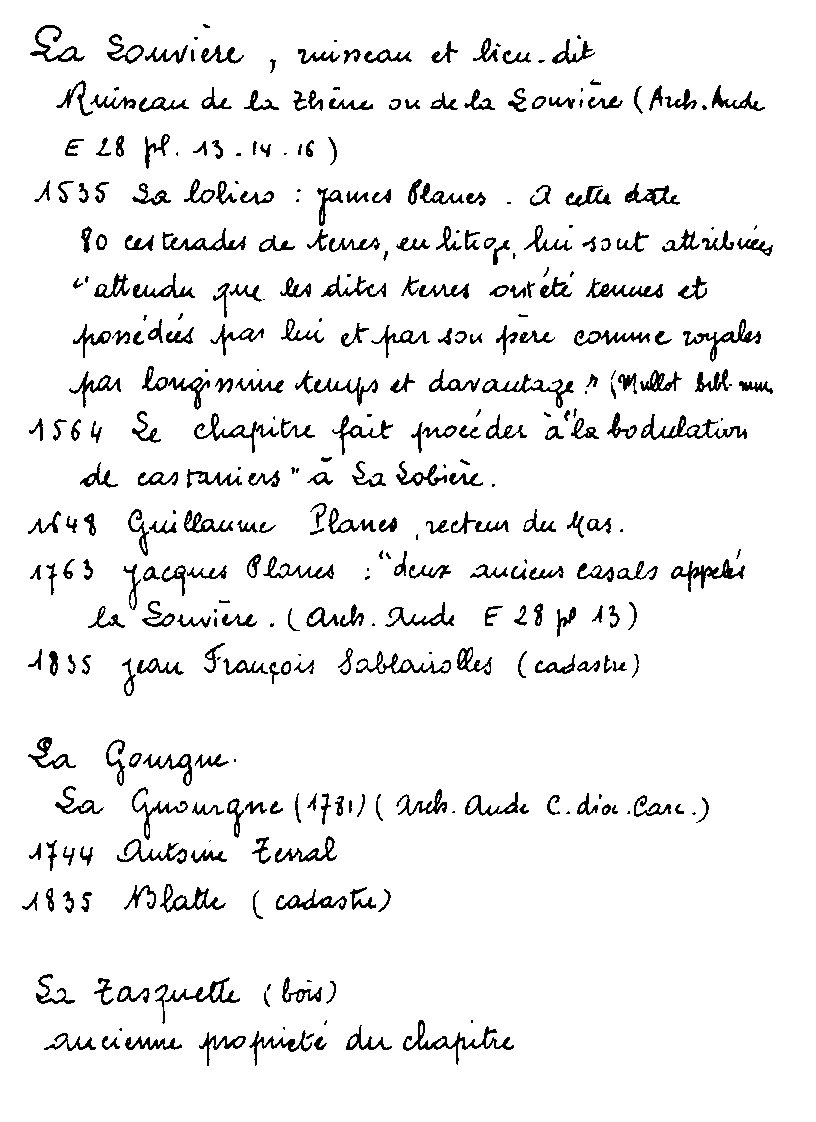 La Louvière, ruisseau et lieu-dit
Ruisseau de la Thène ou de la Louvière (Arch. Aude
E 28 pl. 13-14-16)
1535 La lobiero : James Planes. A cette date
80 cesterades de terres, en litige, lui sont attribuées
"attendu que les dites terres ont été tenues et
possédées par lui et par son père comme royales
par longissime temps et davantage." (Mullot bibl. mun.
1564 Le chapitre fait procéder à "la bodulation
de castaniers" à La Lobière.
1648 Guillaume Planes, recteur du Mas.
1763 Jacques Planes : "deux anciens casals appelés
la Louvière. (Arch. Aude E 28 pl 13)
1835 Jean François Sablairolles (cadastre)
La Gourgue.
La Guourgne (1781) (Arch. Aude C. dioc. Carc.)
1744 Antoine Terral
1835 Blatte (cadastre)
La Tasquette (bois)
ancienne propriété du chapitre